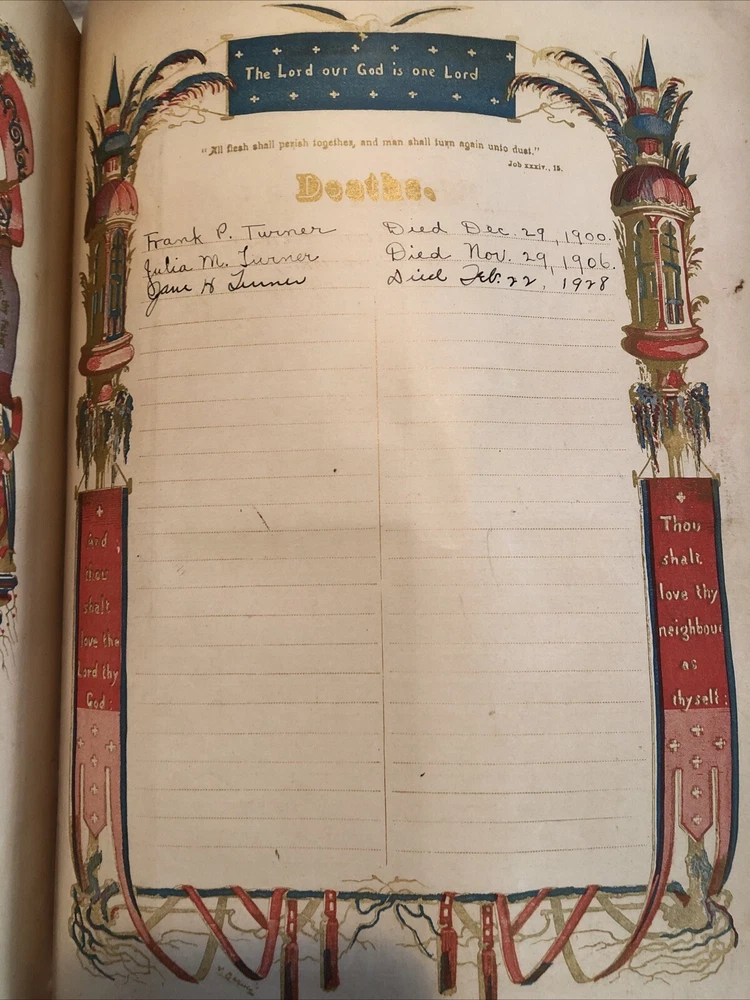 The Lord our God is one Lord
"All flesh shall perish together, and man shall turn again unto dust."
Job xxxiv., 15.
Deaths.
Frank P. Turner Died Dec. 29, 1900.
Julia M. Turner Died Nov. 29, 1906.
Jane H Turner Died Feb. 22, 1928
And
thou
shalt
love the
Lord thy
God:
Thou
shalt
love thy
neighbour
as
thyself: